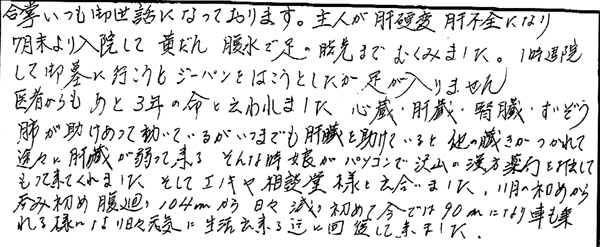 合掌いつも御世話になっております。主人が肝硬変 肝不全になり
7月末より入院して 黄だん 腹水で足の指先までむくみました。1時退院
して御墓に行こうとジーパンをはこうとしたが足が入りません
医者からも あと3年の命と云われました 心臓・肝臓・腎臓・すいぞう
肺が助けあって動いているがいつまでも肝臓を助けていると他の臓きがつかれて
逆に肝臓が弱って来る そんな時娘がパソコンで沢山の漢方薬局を探して
もって来てくれました そしてエノキヤ相談堂様と出合いました。11月の初めから
呑み初め腹廻り104cmから日々減り初めて今では90cmになり車も乗
れる様になり日々元気に生活出来る迄に回復して来ました。